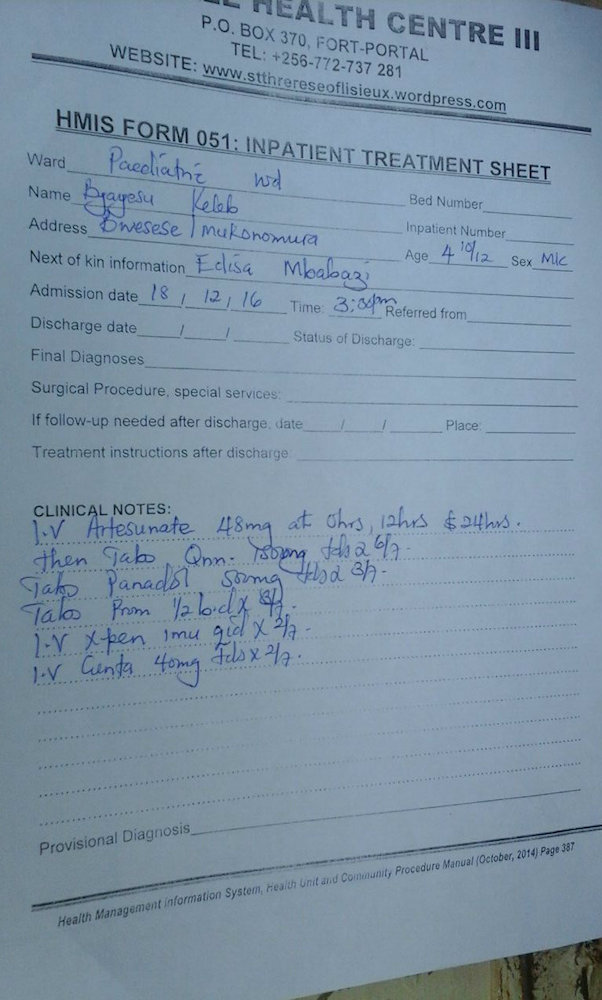 HEALTH CENTRE III
P.O. BOX 370, FORT-PORTAL
TEL: +256-772-737 281
WEBSITE: www.stthrereseoflisieux.wordpress.com
HMIS FORM 051: INPATIENT TREATMENT SHEET
Ward Paediatric wd
Bed Number
Name Byagesu Keleb
Inpatient Number
Address Bwesese / mukonomura
Age 4 10/12 Sex Mlc
Next of kin information Edisa Mbabazi
Admission date 18 / 12 / 16 Time: 3:00pm Referred from
Discharge date / / Status of Discharge:
Final Diagnoses
Surgical Procedure, special services:
If follow-up needed after discharge, date / / Place:
Treatment instructions after discharge:
CLINICAL NOTES:
I.V Artesunate 48mg at 0hrs, 12hrs & 24hrs.
then Tabs Qnn. tds 6/7.
Tabs Panadol 500mg tds 3/7.
Tabs Prom 1/2 b.d x
I.V x-pen 1mu qid x 2/7.
I.V Genta 40mg tds x 2/7.
Provisional Diagnosis
Health Management Information System, Health Unit and Community Procedure Manual (October, 2014) Page 387